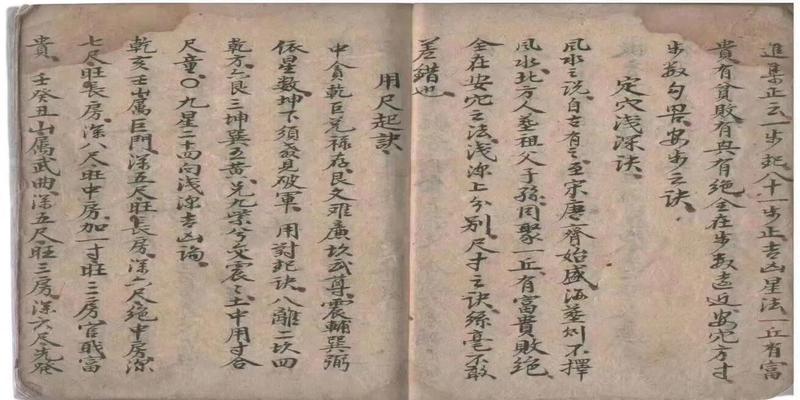 進集正云一步起八十一步正吉凶星法一丘有富
貴有貧敗有興有絕全在步數遠近安穴方寸
步数勾畧安步之訣
定穴浅深訣
風水之說自古有之至宋唐齊始盛海葬則不擇
風水北方人葬祖父子孫同聚一丘有富貴敗絕
全在安穴之法浅深上分别尺寸之訣絲毫不敢
差錯也
用尺起訣
中貪乾巨兌禄存艮文难廣坎武尊震輔巽弼
依星数坤下須發見破軍用對起訣八離二坎四
乾方六艮三坤巽五黃兑九紫兮交震之土中用寸合
尺童〇九星二十四向浅深吉凶論
乾亥壬山属巨門深五尺旺長房深六尺絕中房深
七尺旺長房深八尺旺中房加一寸旺三房官戝富
貴壬癸丑山属武曲深五尺旺三房深六尺先發